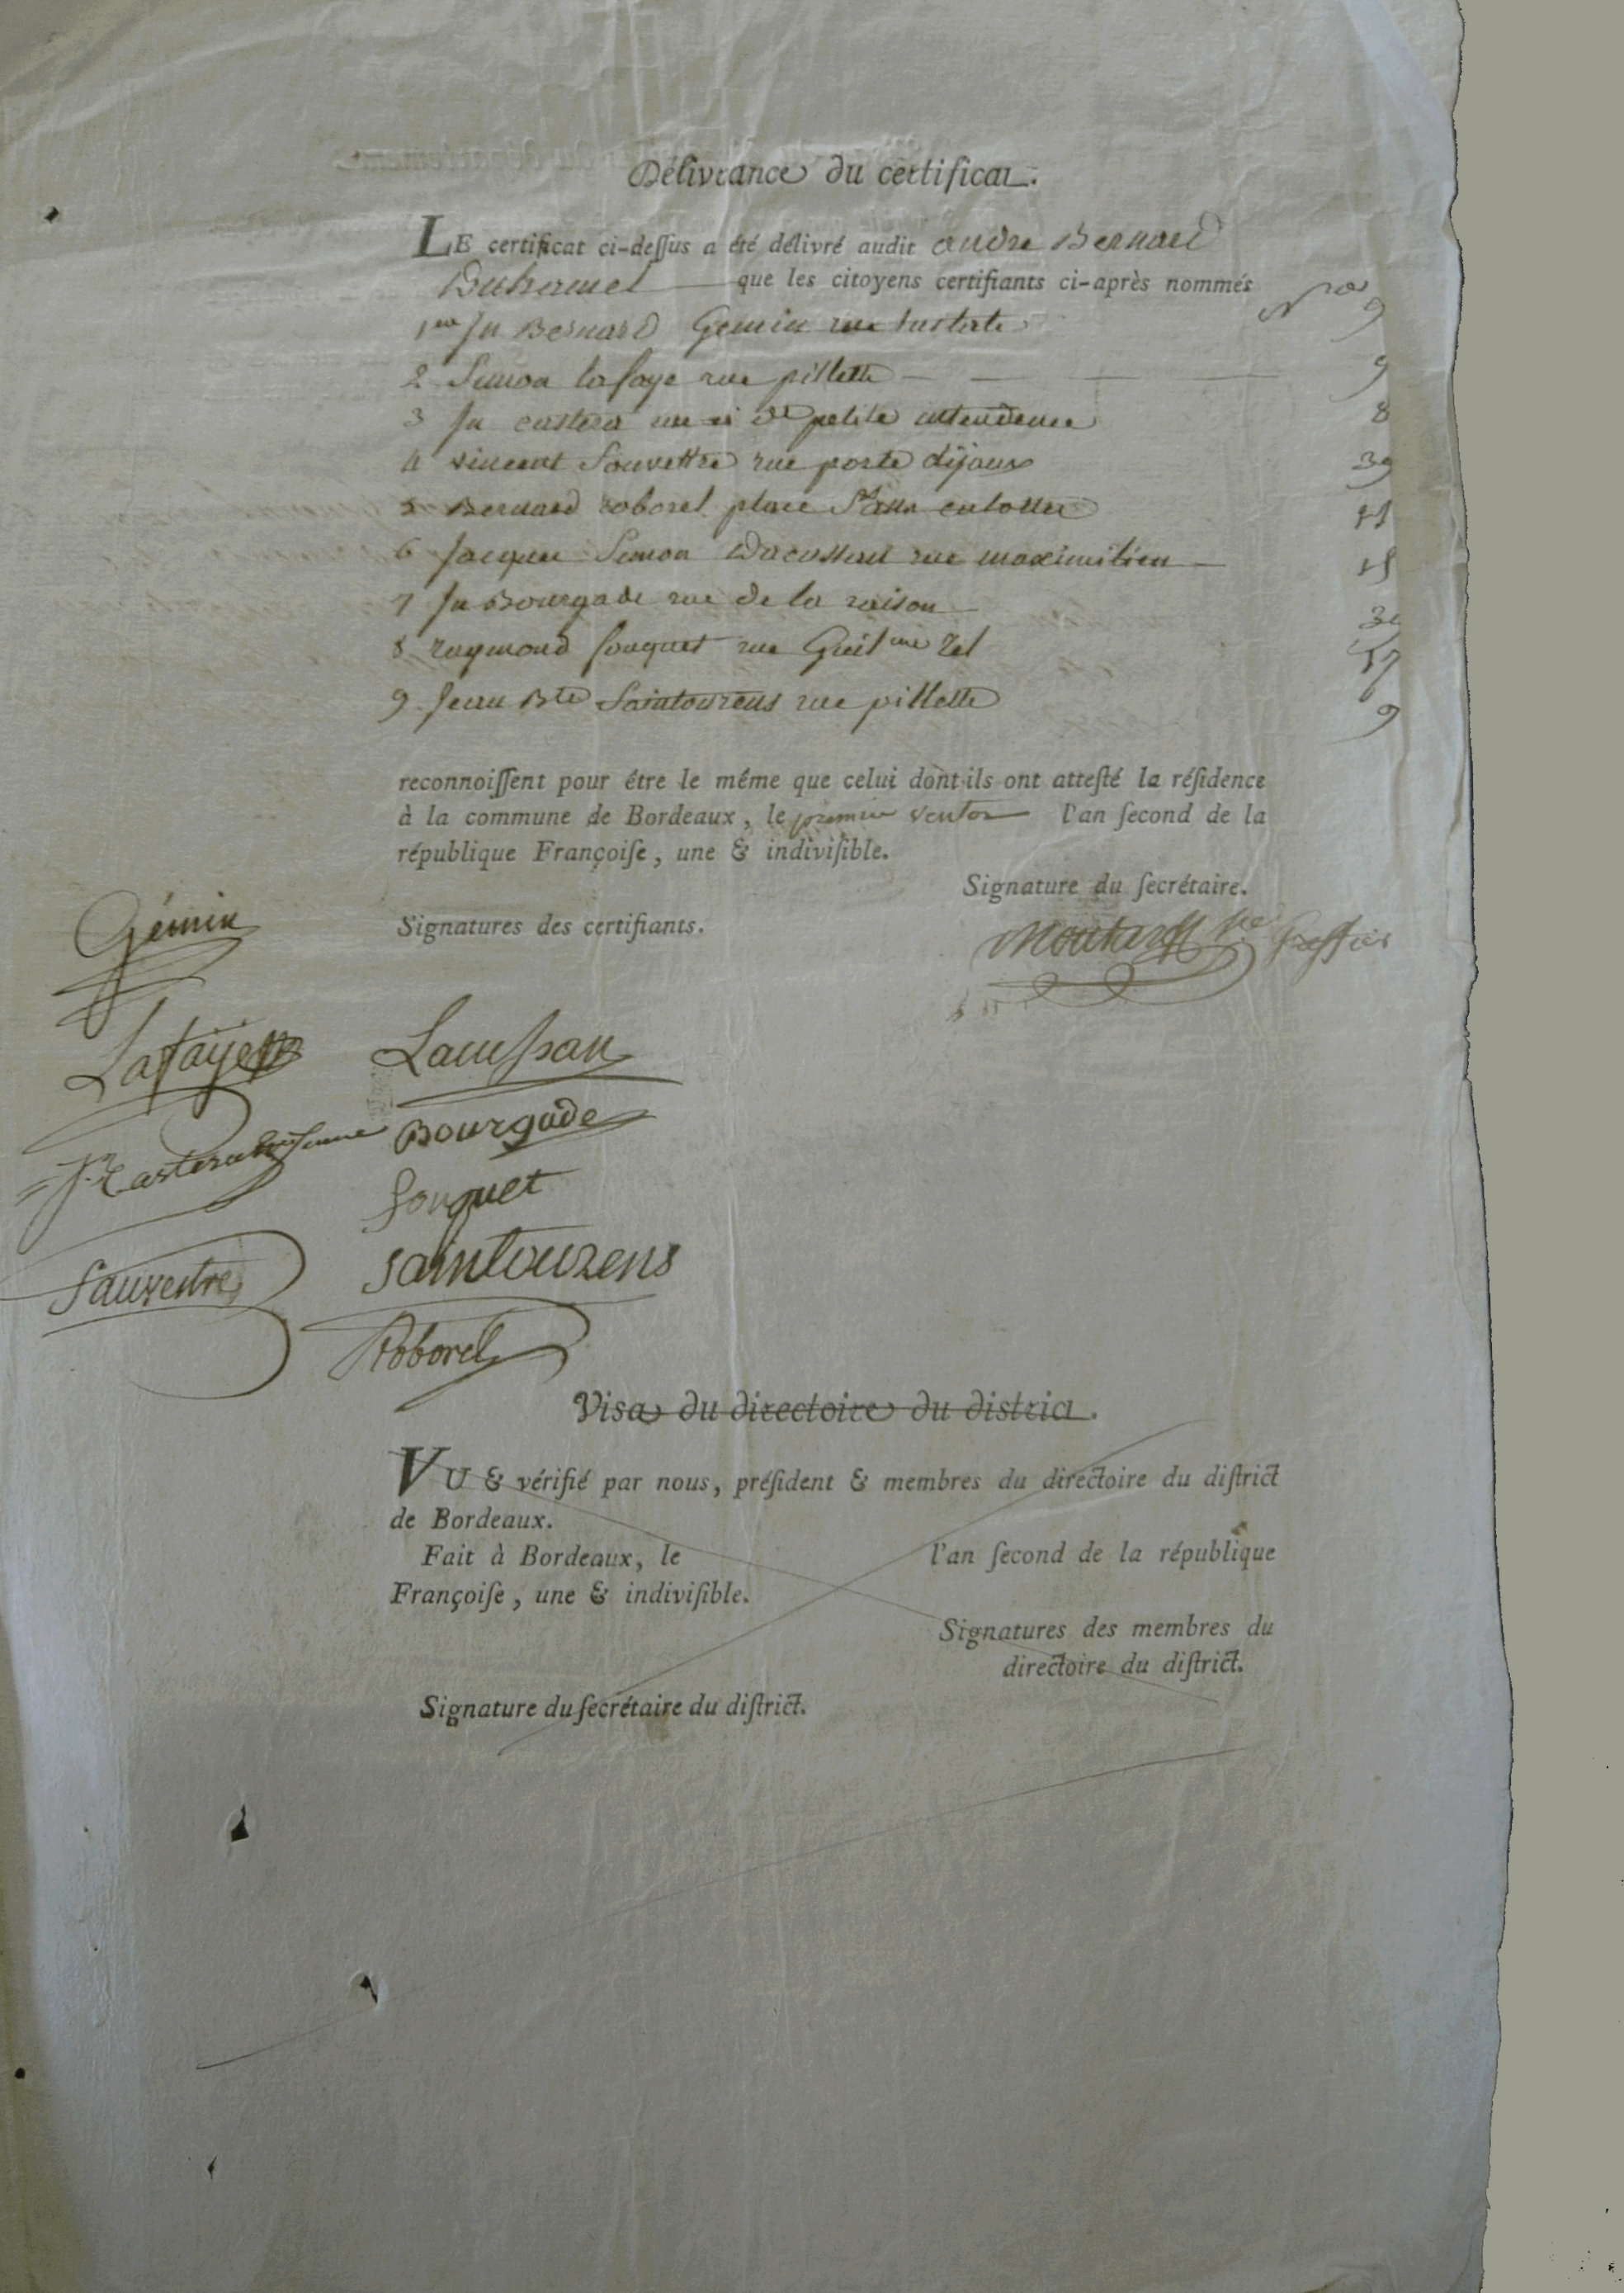 Délivrance du certificat.
LE certificat ci-deſſus a été délivré audit andre Bernard
Duhermel que les citoyens certifiants ci-après nommés
Nos
1er Jn Bernard Gemin rue 9
2 Simon lafaye rue pillette 9
3 Jn castera rue de petite intendence 8
4 vincent Sauvestre rue porte dijaux 39
5 Bernard roborel place
6 Jacques Simon rue maximilien
7 Jn Bourgade rue de la raison
8 raymond fouquet rue
9 Jean Bte Saintourens rue pillette 9
reconnoiſſent pour être le même que celui dont ils ont atteſté la réſidence
à la commune de Bordeaux, le premier ventos l'an ſecond de la
république Françoiſe, une & indiviſible.
Signature du ſecrétaire.
Signatures des certifiants.
Greffier
Gémin
Lafaye
Bourgade
fouquet
Sauvestre
Saintourens
Roborel
Visa du directoire du district.
VU & vérifié par nous, préſident & membres du directoire du diſtrict
de Bordeaux.
Fait à Bordeaux, le l'an ſecond de la république
Françoiſe, une & indiviſible.
Signatures des membres du
directoire du diſtrict.
Signature du ſecrétaire du diſtrict.